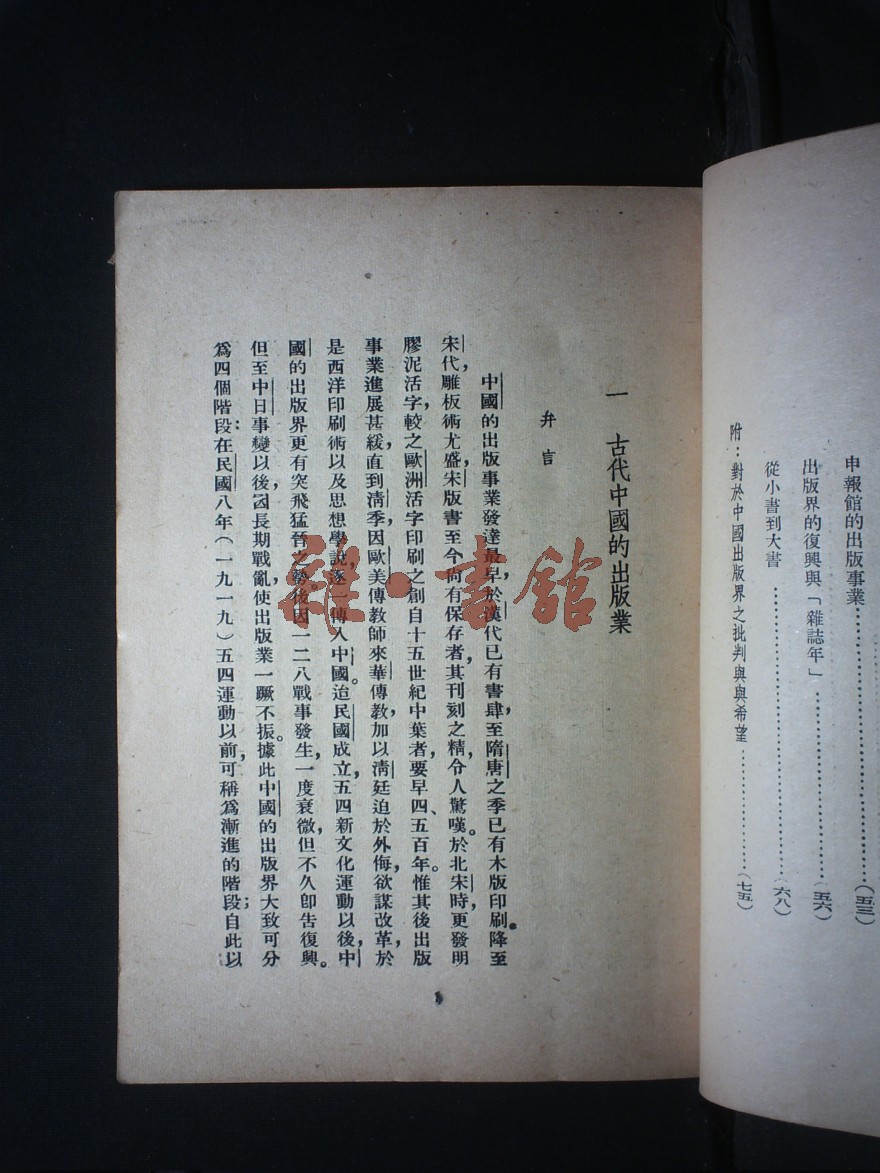 申報館的出版事業…………………………(五三)
出版界的復興與「雜誌年」…………………(五六)
從小書到大書…………………………(六八)
附:對於中國出版界之批判與與希望……………(七五)
一 古代中國的出版業
弁言
中國的出版事業發達最早,於漢代已有書肆,至隋唐之季已有木版印刷。降至
宋代,雕板術尤盛,宋版書至今尚有保存者,其刊刻之精,令人驚嘆。於北宋時,更發明
膠泥活字,較之歐洲活字印刷之創自十五世紀中葉者,要早四、五百年。惟其後出版
事業進展甚緩,直到清季,因歐美傳教師來華傳教,加以清廷迫於外侮,欲謀改革,於
是西洋印刷術以及思想學說,逐一傳入中國。迨民國成立,五四新文化運動以後,中
國的出版界更有突飛猛晉之勢。後因一二八戰事發生,一度衰微,但不久卽告復興。
但至中日事變以後,因長期戰亂,使出版業一蹶不振。據此,中國的出版界大致可分
爲四個階段:在民國八年(一九一九)五四運動以前,可稱爲漸進的階段;自此以
雜·書館